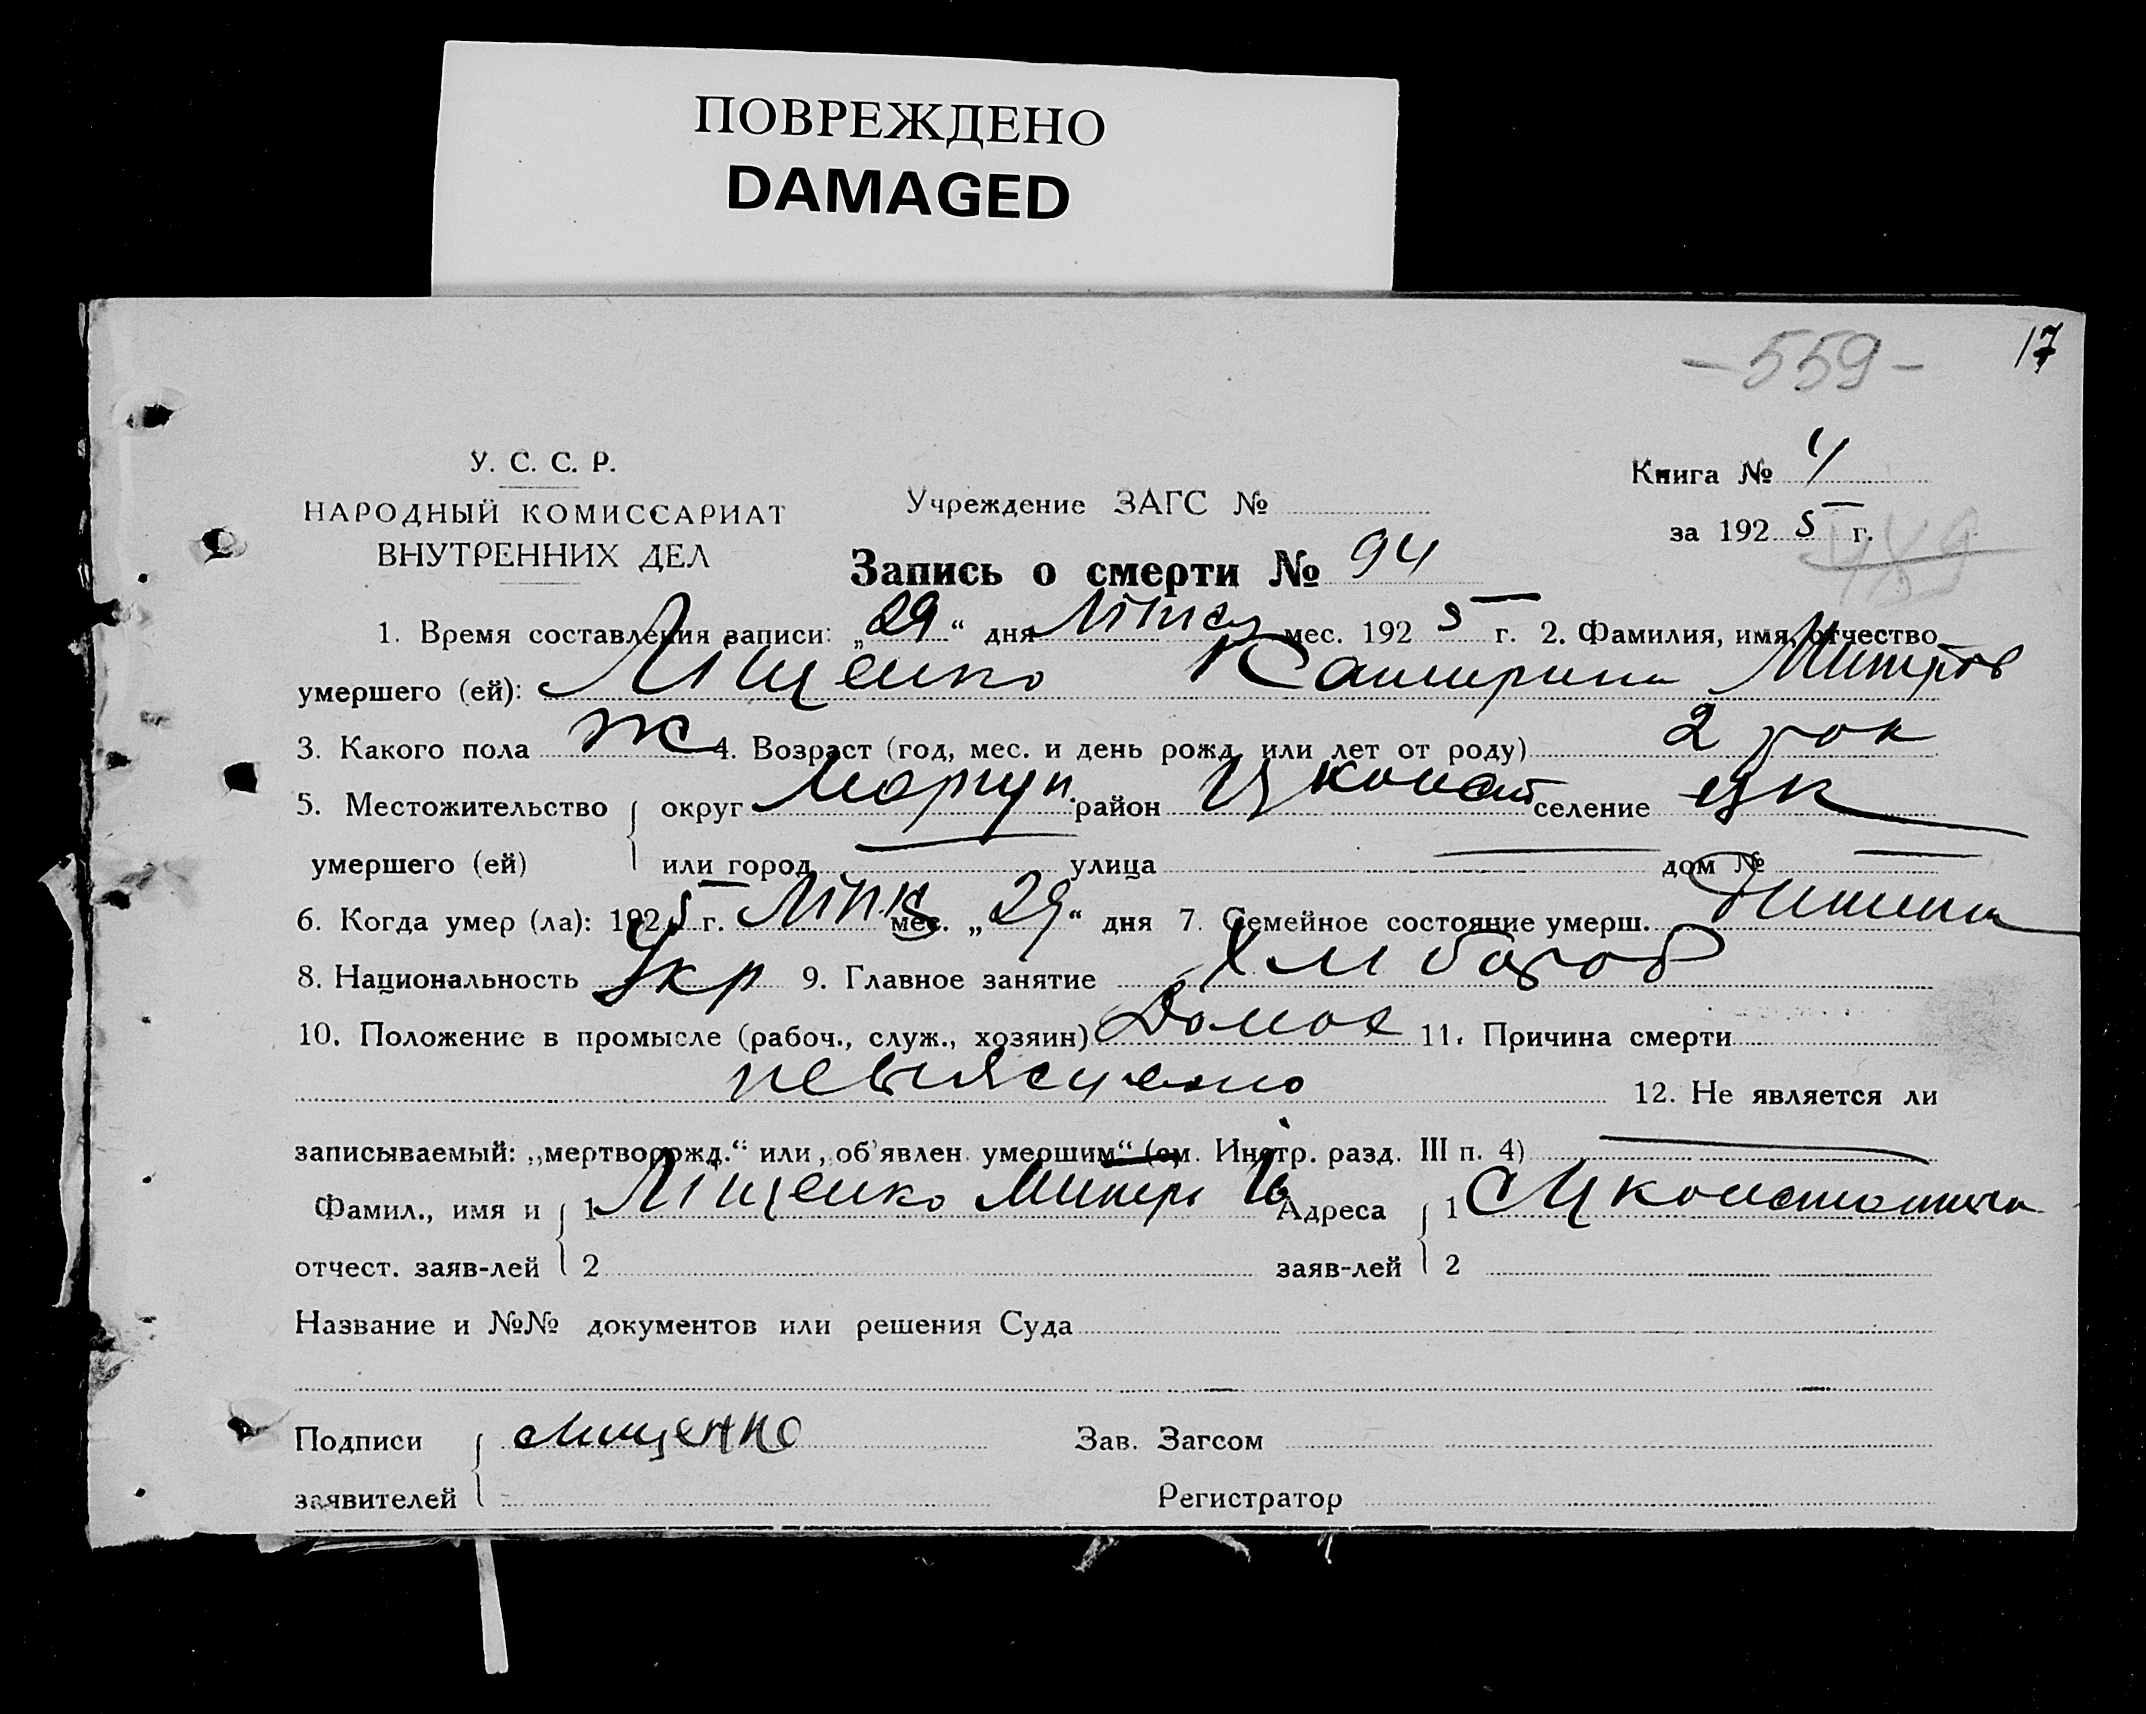 ПОВРЕЖДЕНО
DAMAGED
17
- 559 -
У. С. С. Р.
НАРОДНЫЙ КОМИССАРИАТ
ВНУТРЕННИХ ДЕЛ
Учреждение ЗАГС №
Книга № 4
за 1925 г.
489
Запись о смерти № 94
1. Время составления записи: „29“ дня Липця мес. 1925 г. 2. Фамилия, имя, отчество
умершего (ей): Ліщенко Катерина Митров
3. Какого пола ж 4. Возраст (год, мес. и день рожд. или лет от роду) 2 рок
5. Местожительство округ Маріуп. район Цконст селение Цк
умершего (ей) или город улица дом №
6. Когда умер (ла): 1925 г. Липц мес. „29“ дня 7. Семейное состояние умерш. Дитина
8. Национальность Укр 9. Главное занятие Хлібороб
10. Положение в промысле (рабоч., служ., хозяин) 11. Причина смерти
невияснено 12. Не является ли
записываемый: „мертворожд.“ или „об'явлен умершим“ (см. Инстр. разд. III п. 4)
Фамил., имя и 1 Ліщенко Митро Адреса 1 С Цконстантин
отчест. заяв-лей 2 заяв-лей 2
Название и №№ документов или решения Суда
Подписи Лищенко Зав. Загсом
заявителей Регистратор